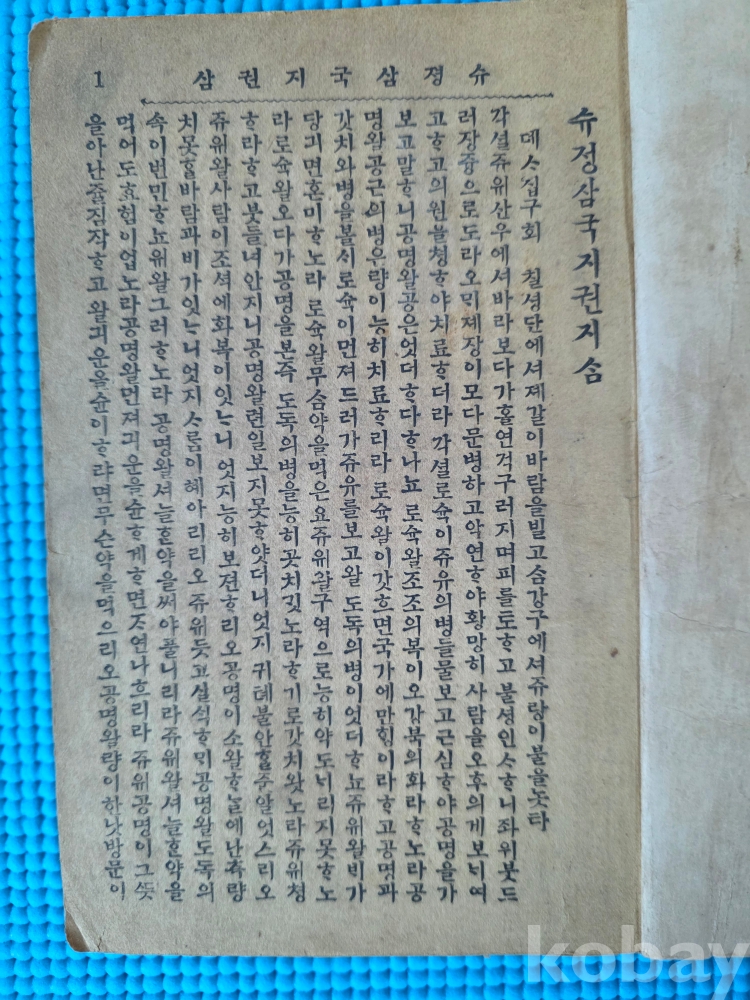 슈졍삼국지권삼 1
슈정삼국지권지삼
뎨ᄉᆞ십구회 칠셩단에셔졔갈이바람을빌고삼강구에셔쥬랑이불을놋타
각셜쥬위산우에셔바라보다가홀연걱구러지며피를토ᄒᆞ고불셩인ᄉᆞᄒᆞ니좌위붓드
러장즁으로도라오ᄆᆡ졔장이모다문병하고악연ᄒᆞ야황망히사람을오후의게보ᄂᆡ여
고ᄒᆞ고의원을쳥ᄒᆞ야치료ᄒᆞ더라각셜로슉이쥬유의병들물보고근심ᄒᆞ야공명을가
보고말ᄒᆞ니공명왈공은엇더ᄒᆞ다ᄒᆞ나뇨 로슉왈조조의복이오강북의화라ᄒᆞ노라공
명왈공근의병은량이능히치료ᄒᆞ리라 로슉왈이갓흐면국가에만힝이라ᄒᆞ고공명과
갓치와병을볼시로슉이먼져드러가쥬유를보고왈 도독의병이엇더ᄒᆞ뇨쥬위왈비가
당긔면혼미ᄒᆞ노라 로슉왈무슴약을먹은요쥬위왈구역으로능히약도ᄂᆡ리지못ᄒᆞ노
라로슉왈오다가공명을본즉 도독의병을능히곳치깃노라ᄒᆞ기로갓치왓노라쥬위쳥
ᄒᆞ라ᄒᆞ고붓들녀안지니공명왈련일보지못ᄒᆞ얏더니엇지귀톄불안ᄒᆞᆯ줄알엇스리오
쥬위왈사람이조셕에화복이잇ᄂᆞ니 엇지능히보젼ᄒᆞ리오공명이소왈ᄒᆞᄂᆞᆯ에난측량
치못ᄒᆞᆯ바람과비가잇ᄂᆞ니엇지ᄉᆞ름이혜아리리오 쥬위듯고실석ᄒᆞᄆᆡ공명왈도독의
속이번민ᄒᆞ뇨쥬위왈그러ᄒᆞ노라 공명왈셔늘ᄒᆞᆫ약을써야풀니리라쥬위왈셔늘ᄒᆞᆫ약을
먹어도효험이업노라공명왈먼져긔운을슌ᄒᆞ게ᄒᆞ면ᄌᆞ연나흐리라 쥬위공명이그ᄯᅳᆺ
을아난줄짐작ᄒᆞ고 왈긔운을슌이ᄒᆞ랴면무슨약을먹으리오공명왈량이한낫방문이
kobay